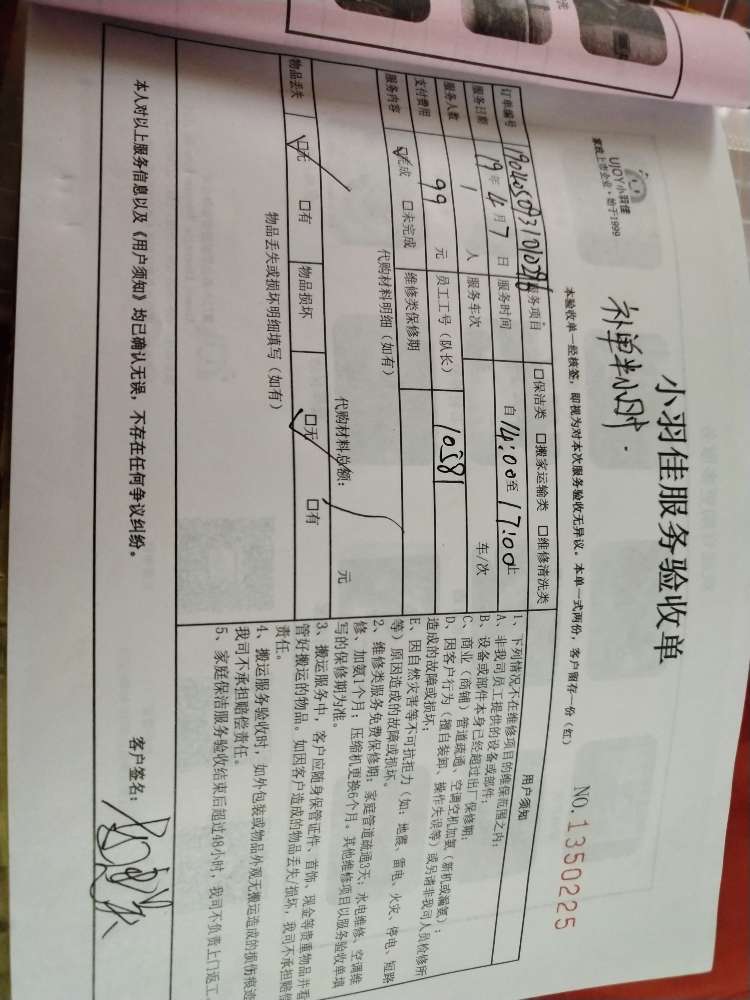 UJOY小羽佳
家政上市企业·始于1999
小羽佳服务验收单
补单半小时.
NO.1350225
本验收单一经核签,即视为对本次服务验收无异议。本单一式两份,客户留存一份(红)
订单编号 服务项目 □保洁类 □搬家运输类 □维修清洗类
服务日期 19年4月7日 服务时间 自14:00至17:00止
服务人数 1人 服务车次 车/次
支付费用 99元 员工工号(队长) 10581
服务内容 ☑完成 □未完成 维修类保修期
代购材料明细(如有)
代购材料总额: 元
物品丢失 ☑无 □有 物品损坏 ☑无 □有
物品丢失或损坏明细填写(如有)
用户须知
1、下列情况不在维修项目的维保范围之内:
A、非我司员工提供的设备或部件;
B、设备或部件本身已经超过出厂保修期;
C、商业(商铺)管道疏通、空调空机加氨(新机或漏氨);
D、因客户行为(擅自装卸、操作失误等)或另请非我司人员检修所
造成的故障或损坏;
E、因自然灾害等不可抗拒力(如:地震、雷电、火灾、停电、短路
等)原因造成的故障或损坏。
2、维修类服务免费保修期:家庭管道疏通3天;水电维修、空调维
修、加氨1个月;压缩机更换6个月。其他维修项目以服务验收单填
写的保修期为准。
3、搬运服务中,客户应随身保管证件、首饰、现金等贵重物品并看
管好搬运的物品。如因客户造成的物品丢失/损坏,我司不承担赔偿
责任。
4、搬运服务验收时,如外包装或物品外观无搬运造成的损伤痕迹
我司不承担赔偿责任。
5、家庭保洁服务验收结束后超过48小时,我司不负责上门返工。
本人对以上服务信息以及《用户须知》均已确认无误,不存在任何争议纠纷。
客户签名: